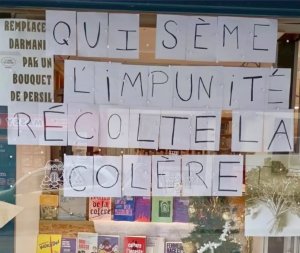 REMPLACE
DARMANI
PAR UN
BOUQUET
DE PERSIL
QUI SÈME
L'IMPUNITÉ
RÉCOLTE LA
COLÈRE